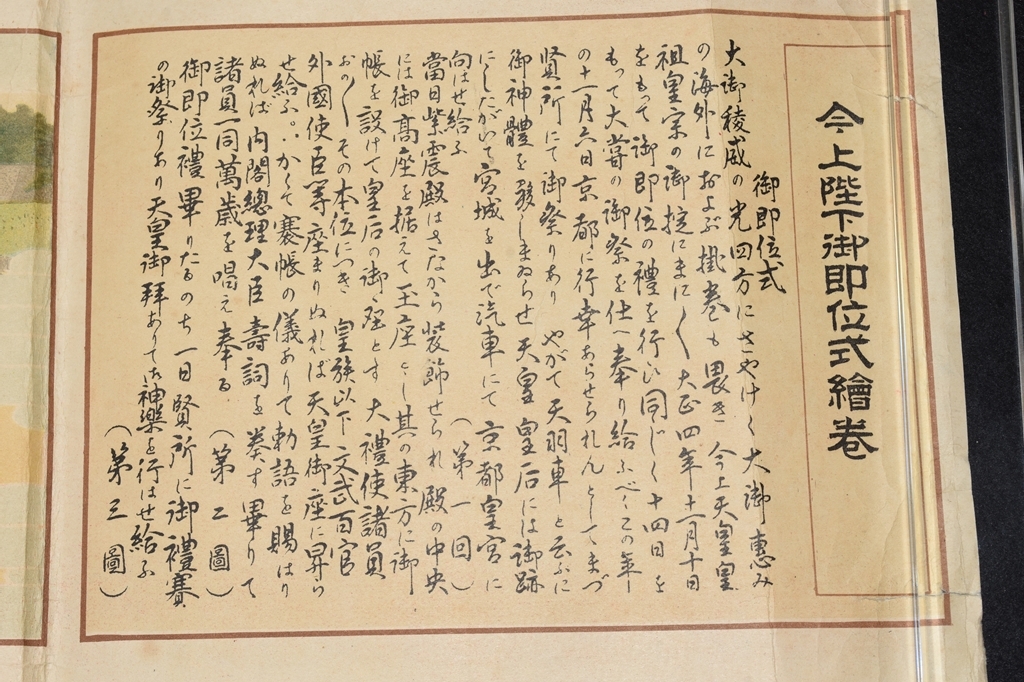 今上陛下御即位式繪卷
御即位式
大御稜威の光四方にさやけく大御惠み
の海外におよぶ掛卷も畏き今上天皇皇
祖皇宗の御掟にまに〱大正四年十一月十日
をもつて御即位の禮を行ひ同じく十四日を
もつて大嘗の御祭を仕へ奉り給ふべくこの年
の十一月六日京都に行幸あらせられんとしてまづ
賢所にて御祭りあり やがて天羽車と云ふに
御神體を移しまゐらせ天皇 皇后には御跡
にしたがいて宮城を出で汽車にて京都皇宮に
向はせ給ふ (第一回)
當日紫宸殿はさながら裝飾せられ殿の中央
には御高座を据えて王座とし其の東方に御
帳を設けて皇后の御座とす 大禮使諸員
おの〱その本位につき 皇族以下文武百官
外國使臣等座まりぬれば天皇御座に昇ら
せ給ふ。かくて褰帳の儀ありて勅語を賜はり
ぬれば內閣總理大臣壽詞を奏す畢りて
諸員一同萬歲を唱え奉る (第二圖)
御即位禮畢りたるのち一日賢所に御禮賽
の御祭りあり天皇御拜ありて御神樂を行はせ給ふ
(第三圖)